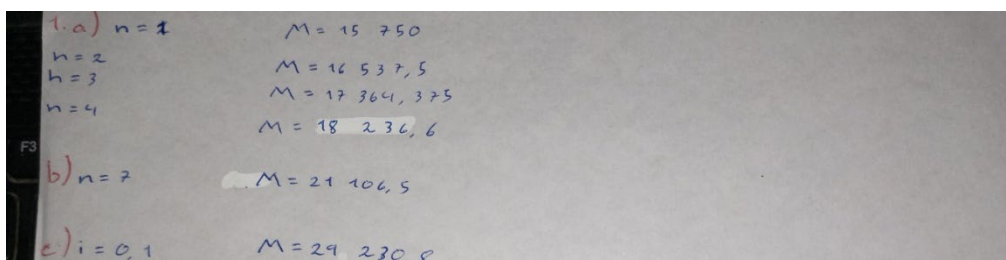 1.a) n = 1 M = 15 750
n = 2 M = 16 537,5
n = 3 M = 17 364,375
n = 4 M = 18 236,6
F3
b) n = 7 M = 21 106,5
c) i = 0,1 M = 29 230